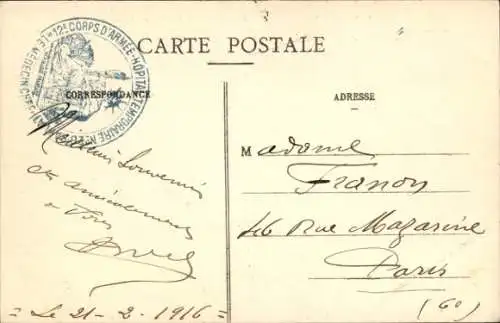 CARTE POSTALE
12e CORPS D'ARMÉE-HÔPITAL TEMPORAIRE
LE MÉDECIN CHEF
CORRESPONDANCE
ADRESSE
Meilleur Souvenir
et
a Vous
= Le 21-2-1916 =
Madame
Franon
46 Rue Mazarine
Paris
(60)